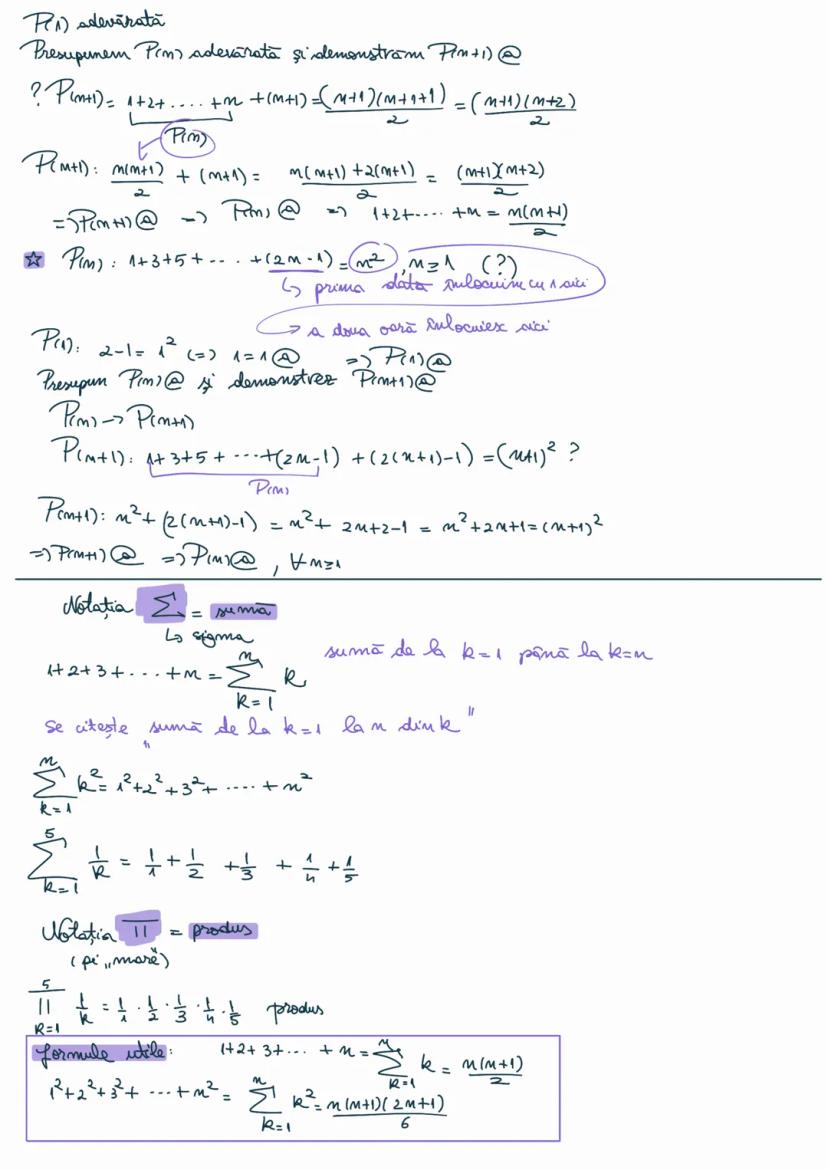 P(1) adevărată
Presupunem P(n) adevărată și demonstrăm P(n+1) Ⓐ
? P(n+1) = 1+2+....+n +(n+1) = (n+1)(n+1+1)/2 = (n+1)(n+2)/2
P(n)
P(n+1): n(n+1)/2 + (n+1) = n(n+1)+2(n+1)/2 = (n+1)(n+2)/2
=> P(n+1) Ⓐ => P(n) Ⓐ => 1+2+....+n = n(n+1)/2
☆ P(n): 1+3+5+....+(2n-1) = n², n≥1 (?)
↳ prima dată înlocuim cu 1 aici
→ a doua oară înlocuiesc aici
P(1): 2-1 = 1² (=) 1=1 Ⓐ => P(1) Ⓐ
Presupun P(n) Ⓐ și demonstrez P(n+1) Ⓐ
P(n) -> P(n+1)
P(n+1): 1+3+5+...+(2n-1) + (2(n+1)-1) = (n+1)² ?
P(n)
P(n+1): n² + (2(n+1)-1) = n² + 2n+2-1 = n²+2n+1 = (n+1)²
=> P(n+1) Ⓐ => P(n) Ⓐ, ∀n≥1
Notația Σ = sumă
↳ sigma
1+2+3+...+n = Σ_{k=1}^{n} k sumă de la k=1 până la k=n
se citește „sumă de la k=1 la n din k"
Σ_{k=1}^{n} k² = 1²+2²+3²+....+n²
Σ_{k=1}^{5} 1/k = 1/1 + 1/2 + 1/3 + 1/4 + 1/5
Notația Π = produs
(pi „mare")
Π_{k=1}^{5} 1/k = 1/1 · 1/2 · 1/3 · 1/4 · 1/5 produs
formule utile: 1+2+3+...+n = Σ_{k=1}^{n} k = n(n+1)/2
1²+2²+3²+...+n² = Σ_{k=1}^{n} k² = n(n+1)(2n+1)/6